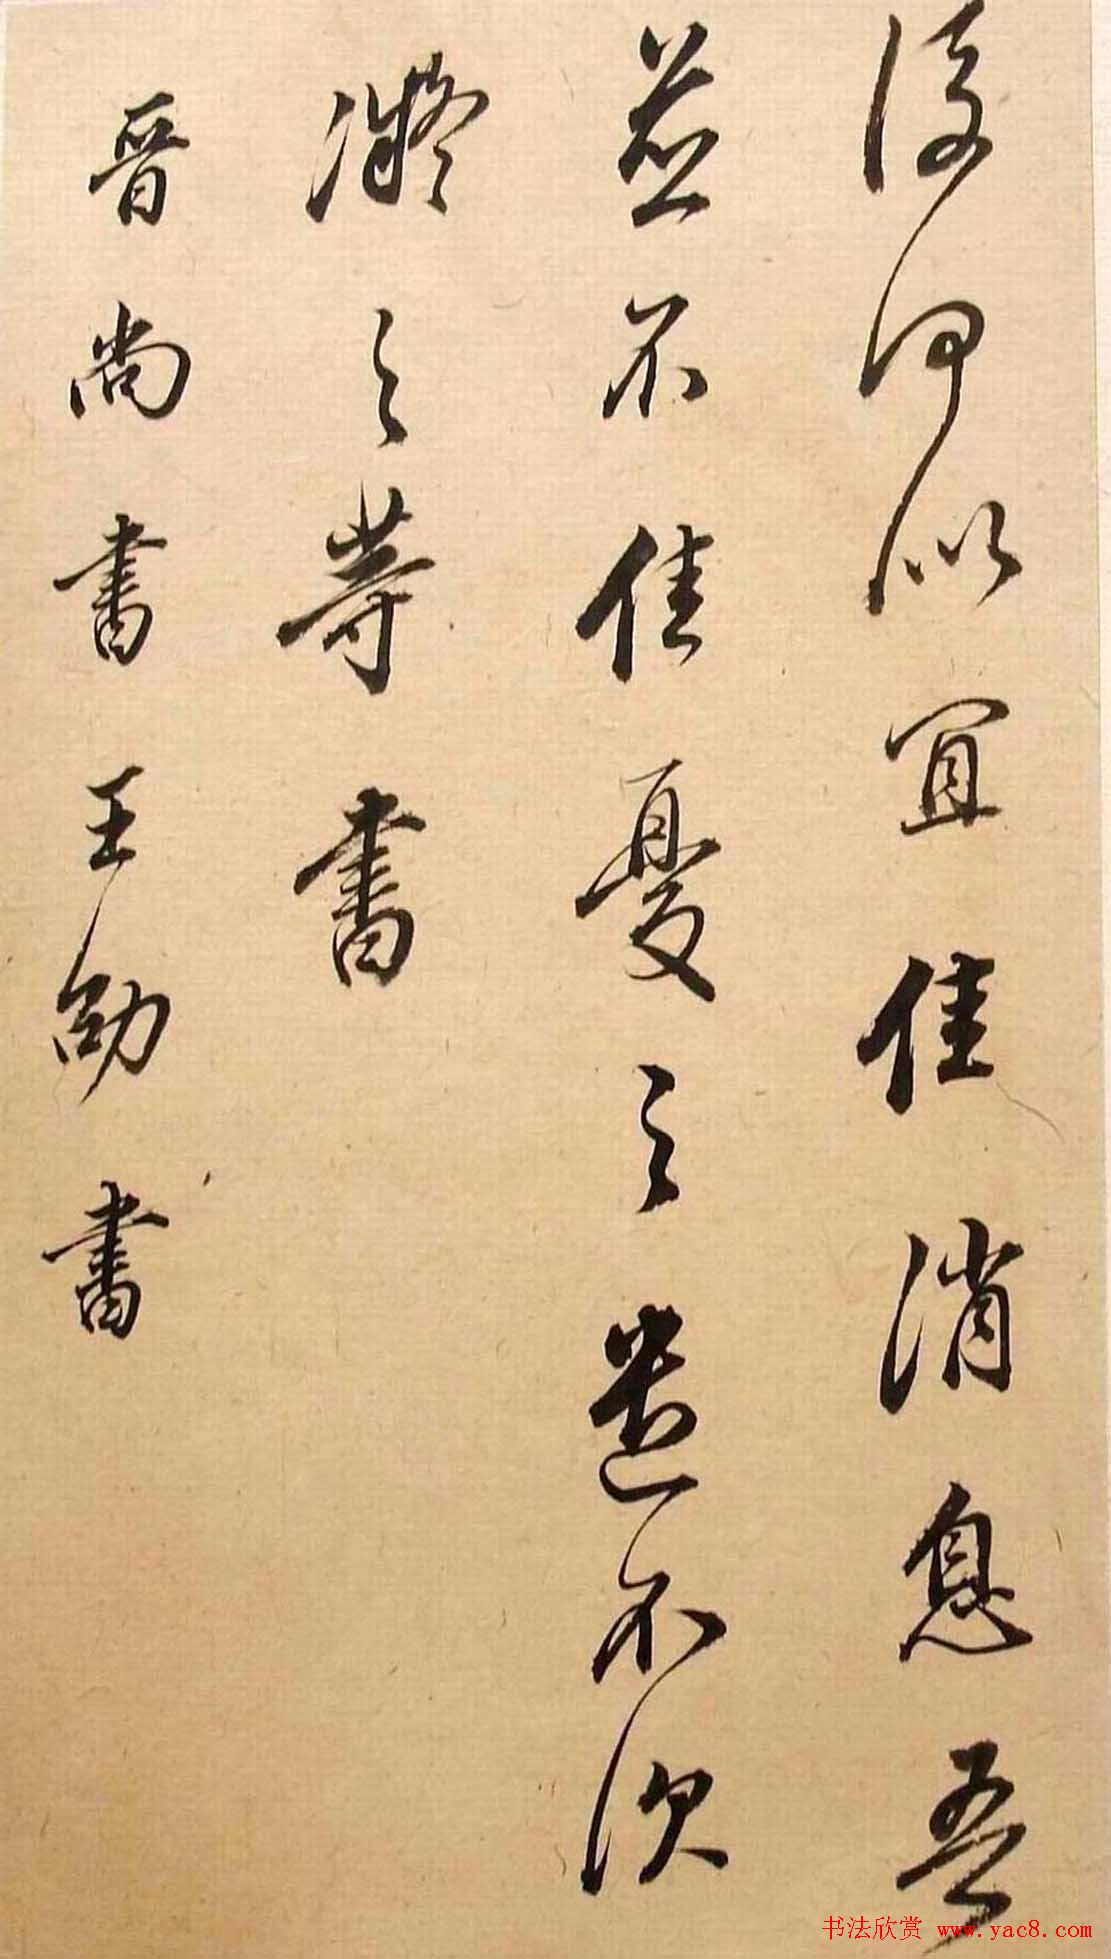 復何似宜佳消息吾
並不佳憂之遣不次
凝之等書
晉尚書王劭書
书法欣赏 www.yac8.com